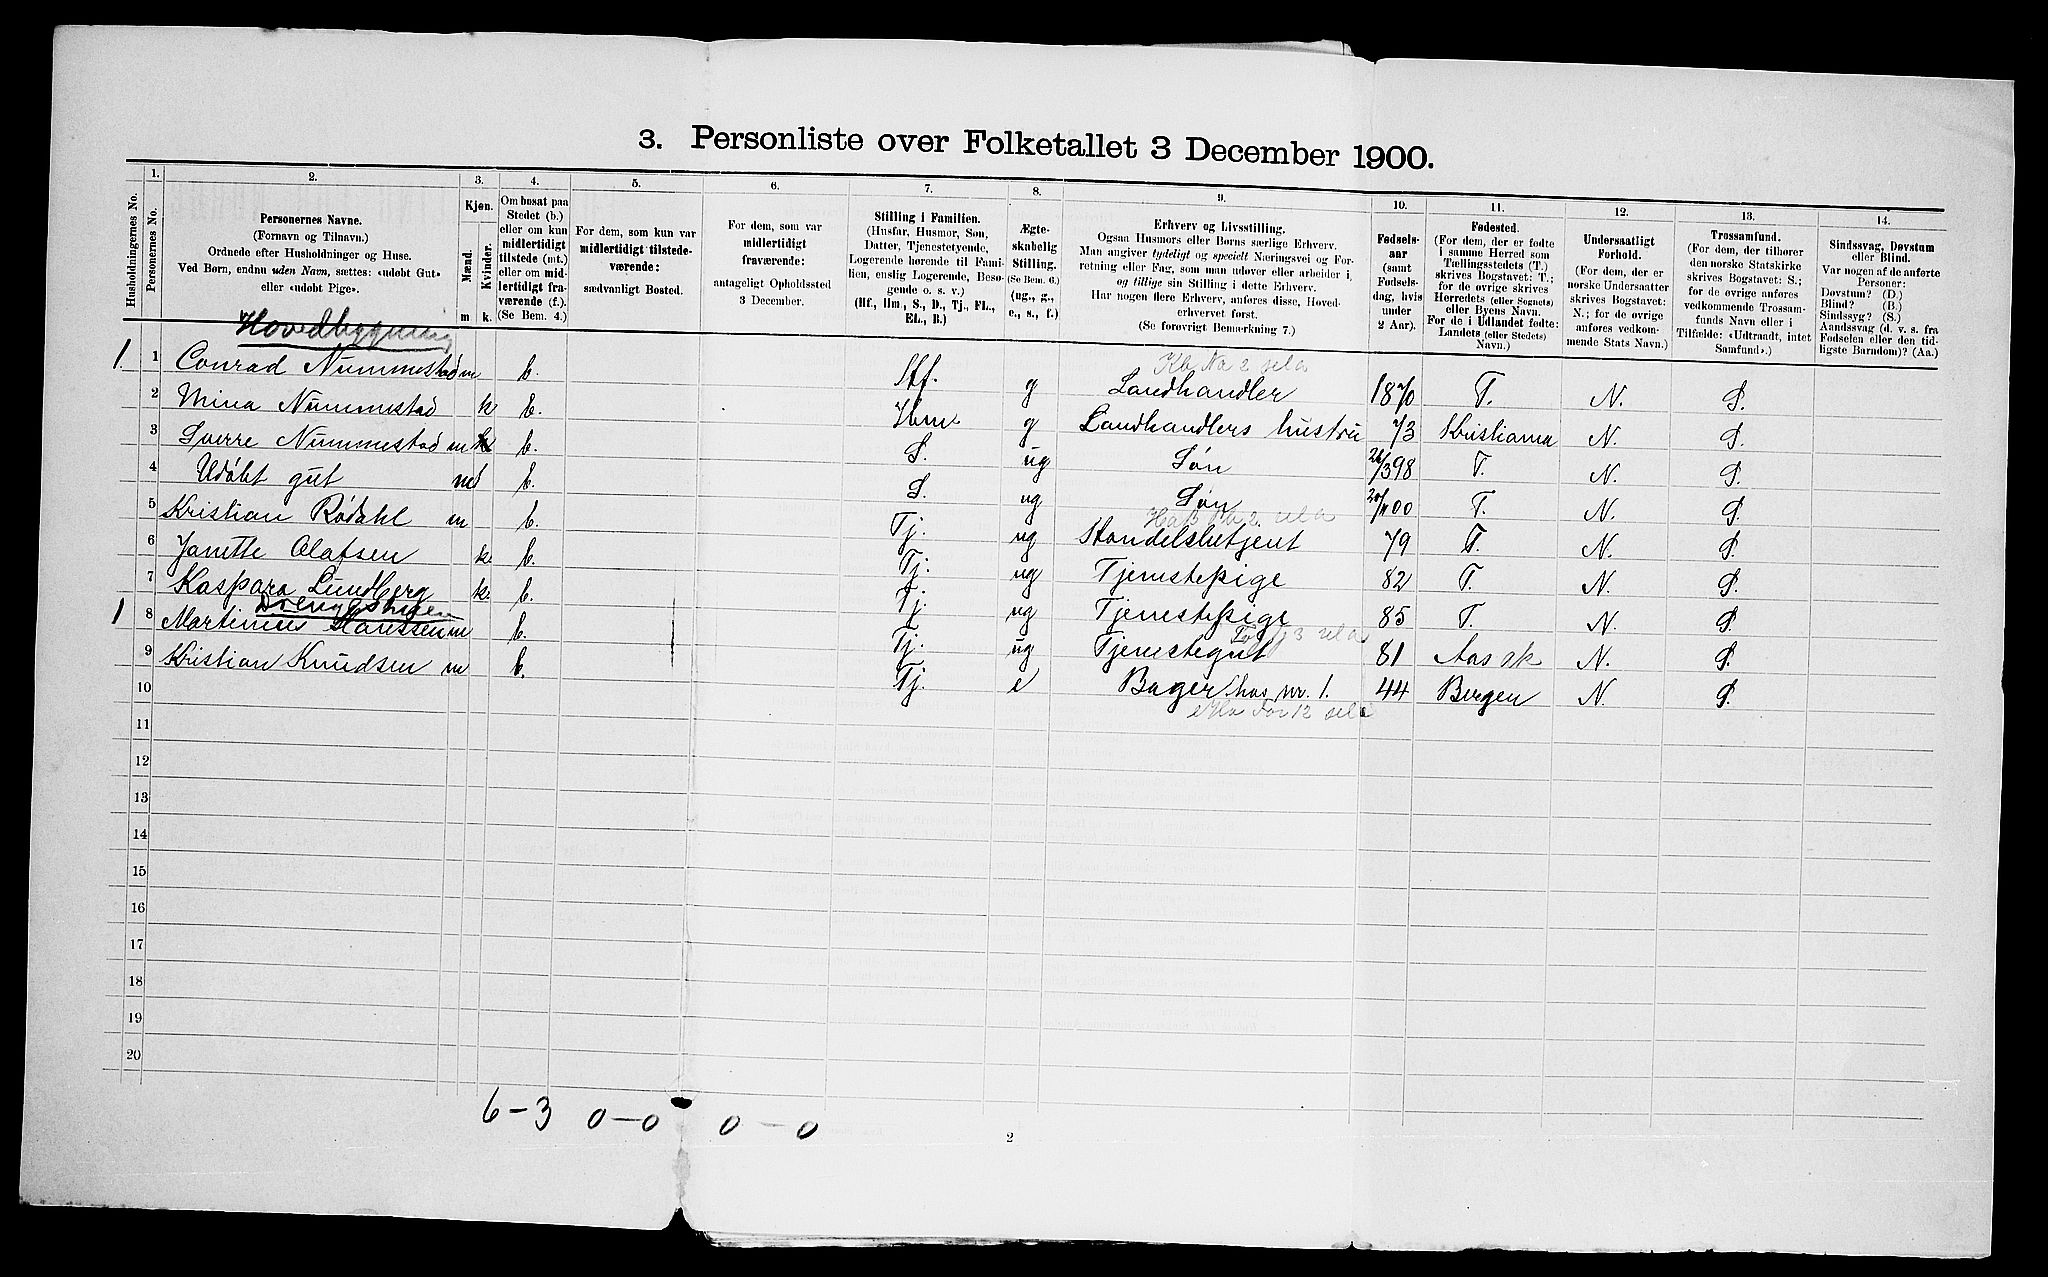 3. Personliste over Folketallet 3 December 1900.
Husholdningernes No.
1. Personernes No.
2. Personernes Navne. (Fornavn og Tilnavn.) Ordnede efter Husholdninger og Huse. Ved Børn, endnu uden Navn, sættes: «udobt Gut» eller «udobt Pige».
3. Kjøn. Mænd. Kvinder. m. k.
4. Om bosat paa Stedet (b.) eller om kun midlertidigt tilstede (mt.) eller om midlertidigt fraværende (f.). (Se Bem. 4.)
5. For dem, som kun var midlertidigt tilstedeværende: sædvanligt Bosted.
6. For dem, som var midlertidigt fraværende: antageligt Opholdssted 3 December.
7. Stilling i Familien. (Husfar, Husmor, Søn, Datter, Tjenestetyende, Logerende hørende til Familien, enslig Logerende, Besøgende o. s. v.) (Hf., Hm., S., D., Tj., FL., EL., B.)
8. Ægteskabelig Stilling. (Se Bem. 6.) (ug., g., e., s., f.)
9. Erhverv og Livsstilling. Ogsaa Husmors eller Børns særlige Erhverv. Man angiver tydeligt og specielt Næringsvei og Forretning eller Fag, som man udøver eller arbeider i, og tillige sin Stilling i dette Erhverv. Har nogen flere Erhverv, anføres disse, Hovederhvervet først. (Se forøvrigt Bemærkning 7.)
10. Fødselsaar (samt Fødselsdag, hvis under 2 Aar).
11. Fødested. (For dem, der er fødte i samme Herred som Tællingsstedets (T.) skrives Bogstavet: T.; for de øvrige skrives Herredets (eller Sognets) eller Byens Navn. For de i Udlandet fødte: Landets (eller Stedets) Navn.)
12. Undersaatligt Forhold. (For dem, der er norske Undersaatter skrives Bogstavet: N.; for de øvrige anføres vedkommende Stats Navn.)
13. Trossamfund. (For dem, der tilhører den norske Statskirke skrives Bogstavet: S.; for de øvrige anføres vedkommende Trossamfunds Navn eller i Tilfælde: «Udtraadt, intet Samfund».)
14. Sindssvag, Døvstum eller Blind. Var nogen af de anførte Personer: Døvstum? (D.) Blind? (B.) Sindssyg? (S.) Aandssvag (d. v. s. fra Fødselen eller den tidligste Barndom)? (Aa.)
Hovedbygning
1. 1 Conrad Nummestad m b. Hf. g Landhandler 1870 T. N. S.
2 Mina Nummestad k b. Hm g Landhandlers hustru 73 Kristiania N. S.
3 Sverre Nummestad m b. S. ug Søn 26/3 98 T. N. S.
4 Udøbt gut m b. S. ug Søn 20/11 00 T. N. S.
5 Kristian Rødahl m b. Tj. ug Handelsbetjent 79 T. N. S.
6 Janette Olafsen k. b. Tj. ug Tjenestepige 82 T. N. S.
7 Kaspara Lundberg k. b. Tj. ug Tjenestepige 85 T. N. S.
Drengestuen
1 8 Martinius Hanssen m b. Tj. ug Tjenestegut 81 Aas sk N. S.
9 Kristian Knudsen m b. Tj. e Bager hos nr. 1. 44 Bergen N. S.
10
11
12
13
14
15
16
17
18
19
20
6 - 3 0 - 0 0 - 0
2